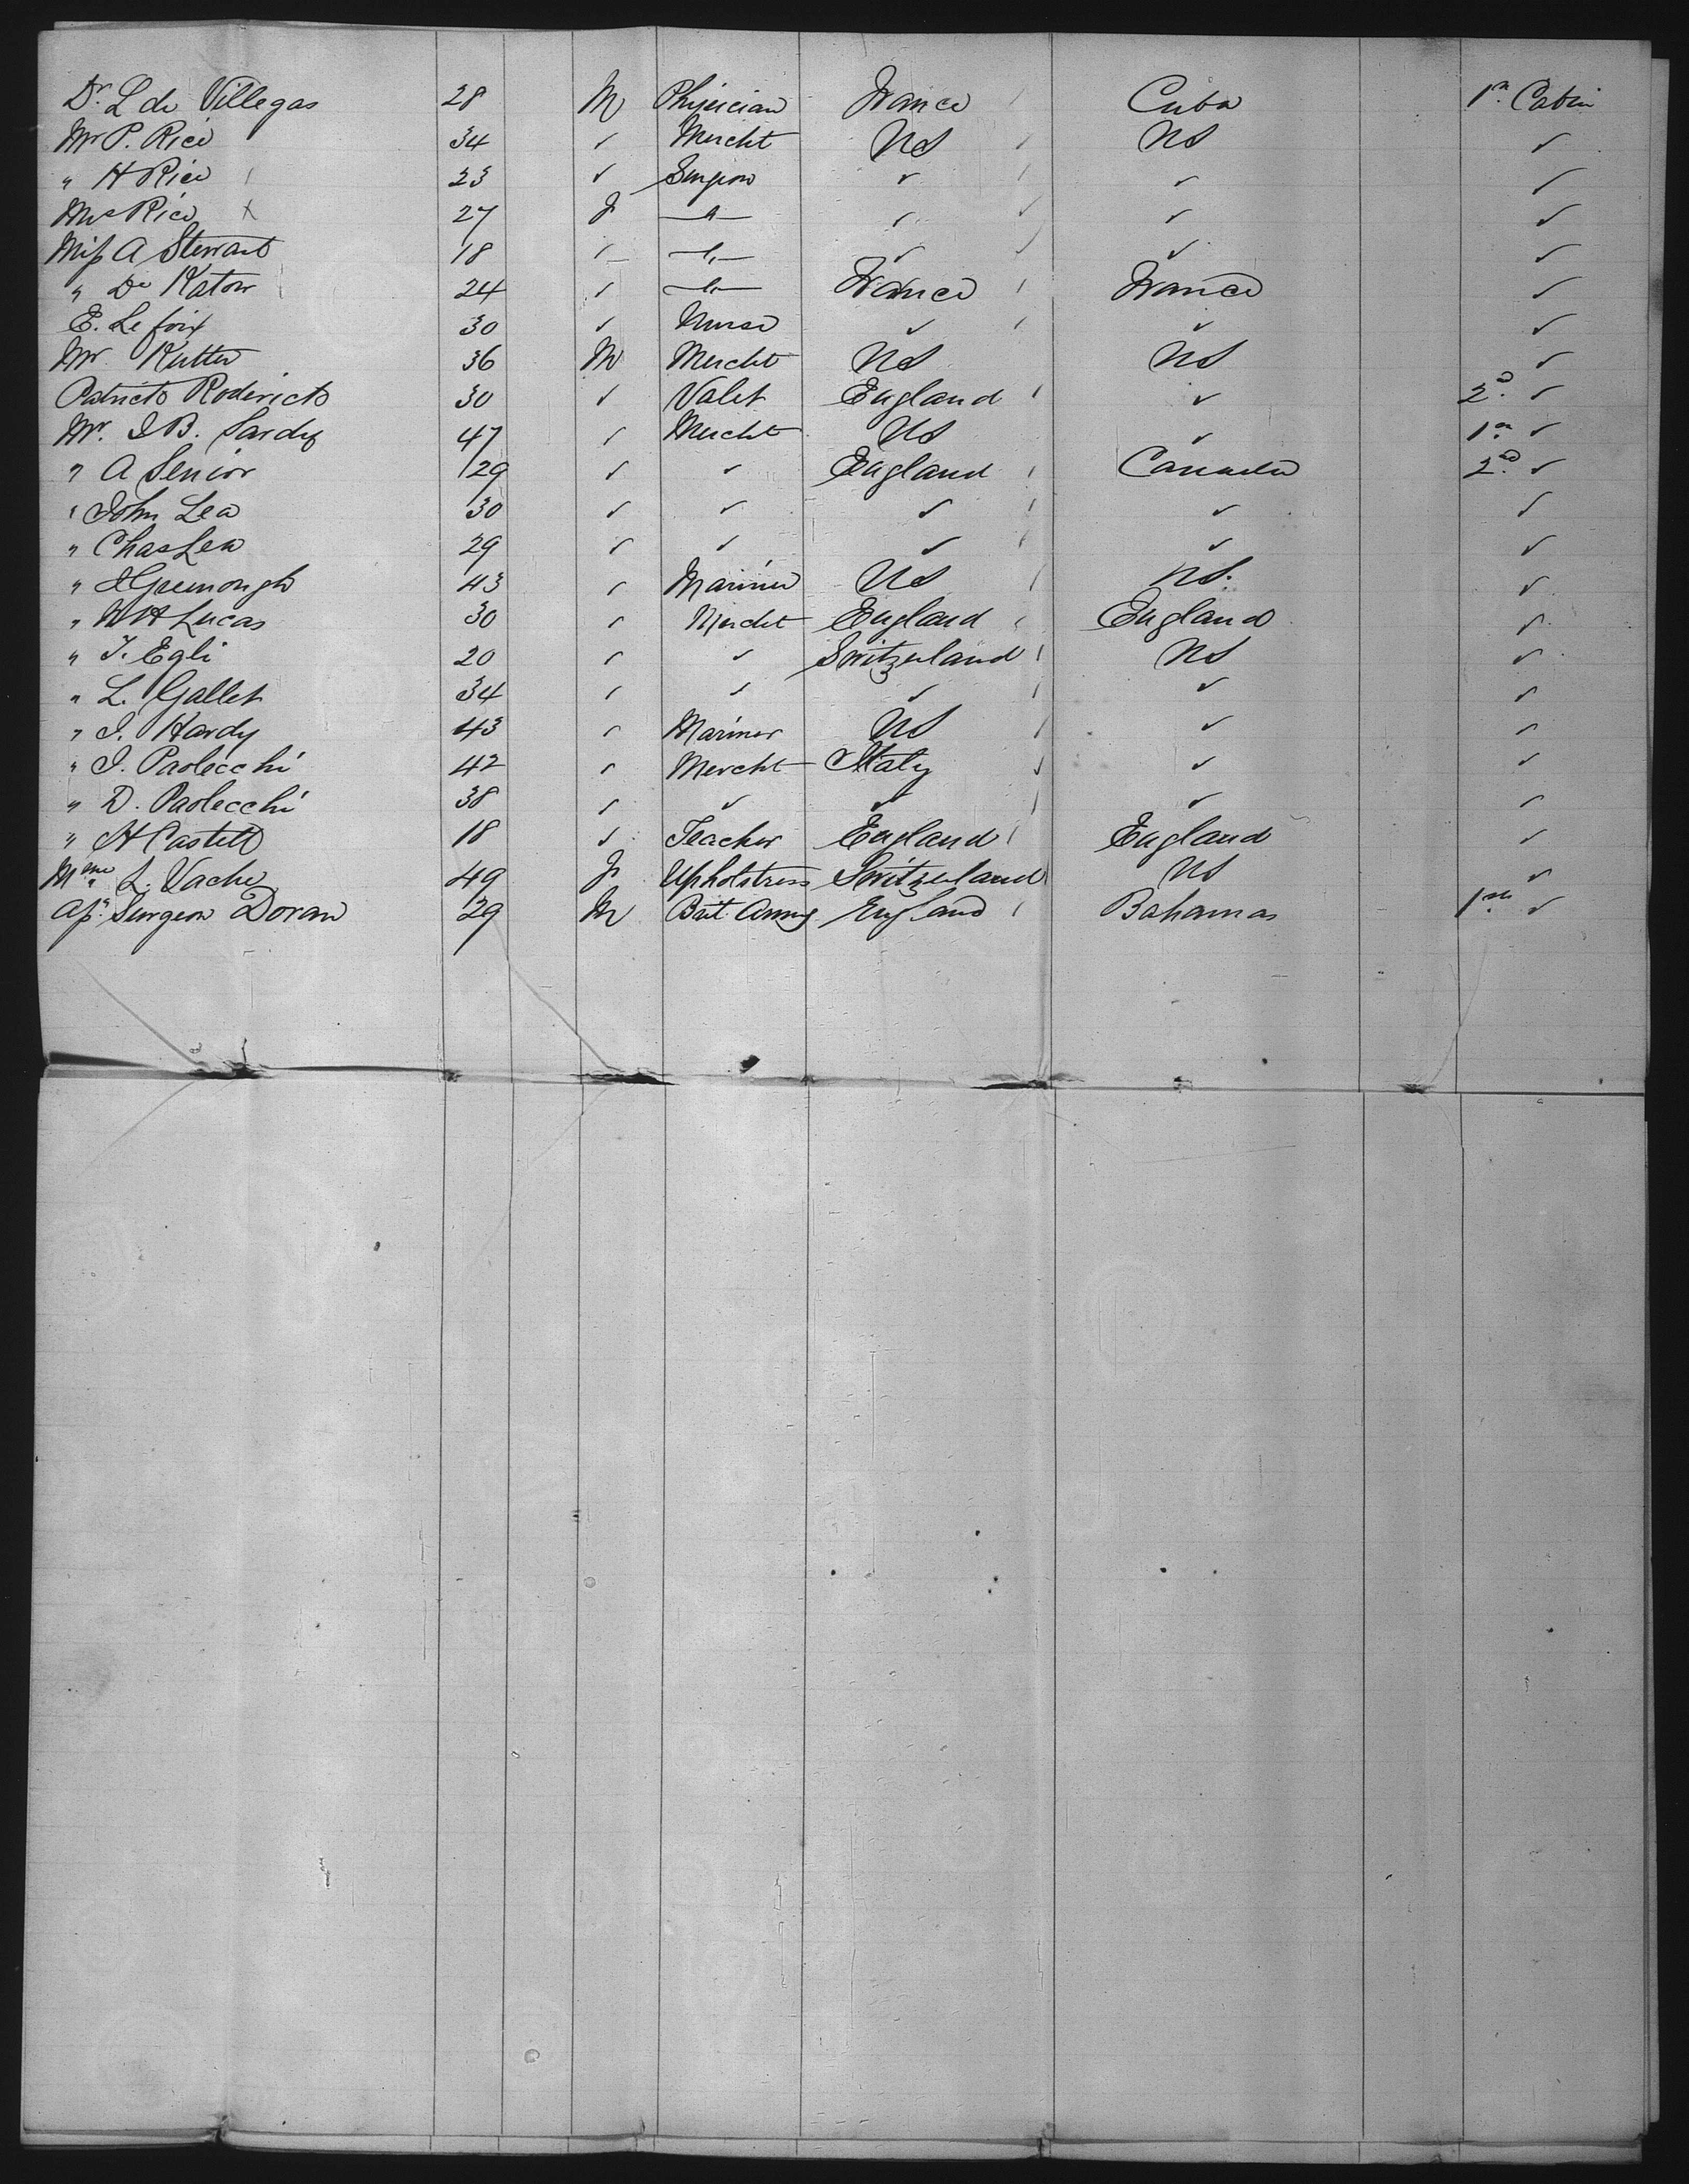 Dr. L de Villegas 28 M Physician France Cuba 1st Cabin
Mr P. Rice 34 ✓ Mercht US ✓ US ✓
" H Rice 23 ✓ Surgeon ✓ ✓ ✓
Mrs Rice x 27 F —"— ✓ ✓ ✓ ✓
Miss A Stewart 18 ✓ —"— ✓ ✓ ✓ ✓
" De Katow 24 ✓ —"— France France ✓
E. Lefoix 30 ✓ Nurse ✓ ✓ ✓
Mr Kutter 36 M Mercht US US ✓
30 ✓ Valet England ✓ 2nd ✓
Mr. I B. Sardy 47 ✓ Mercht US ✓ 1st ✓
" A Senior 29 ✓ ✓ England Canada 2nd ✓
" John Lea 30 ✓ ✓ ✓ ✓ ✓
" Chas Lea 29 ✓ ✓ ✓ ✓ ✓
" Greenough 43 ✓ Mariner US US. ✓
" W H Lucas 30 ✓ Mercht England England ✓
" J. Egli 20 ✓ ✓ Switzerland US ✓
" L. Gallet 34 ✓ ✓ ✓ ✓ ✓
" J. Hardy 43 ✓ Mariner US ✓ ✓
" I. Paolecchi 42 ✓ Mercht Italy ✓ ✓ ✓
" D. Paolecchi 38 ✓ ✓ ✓ ✓ ✓
" H Castell 18 ✓ Teacher England England ✓
Mme L. Vache 49 F Upholstress Switzerland US ✓
Asst Surgeon Doran 29 M Brit. Army England Bahamas 1st ✓